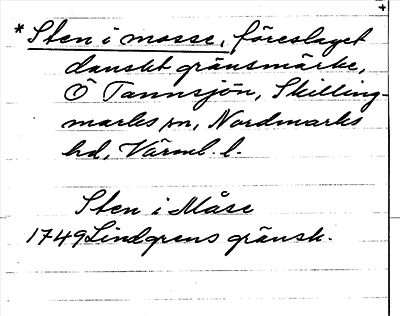 *Sten i mosse, föreslaget
danskt gränsmärke,
Ö Tannsjön, Skilling-
marks sn, Nordmarks
hd, Värml. l.
Sten i Måse
1749 Lindgrens gränsk.